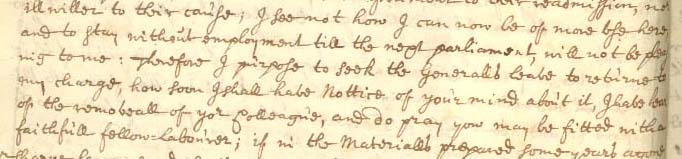 ill willer to their cause; I see not how I can now be of more use here
and to stay without employment till the next parliament, will not be plea
nig to me: Therefore I purpose to seek the Generalls leave to returne to
my charge, how soon I shall have Nottice of your mind about it, I have hea
of the removeall of yor Colleague, and do pray you may be fitted with a
faithfull fellow=Labourer; if in the Materialls prepared some years